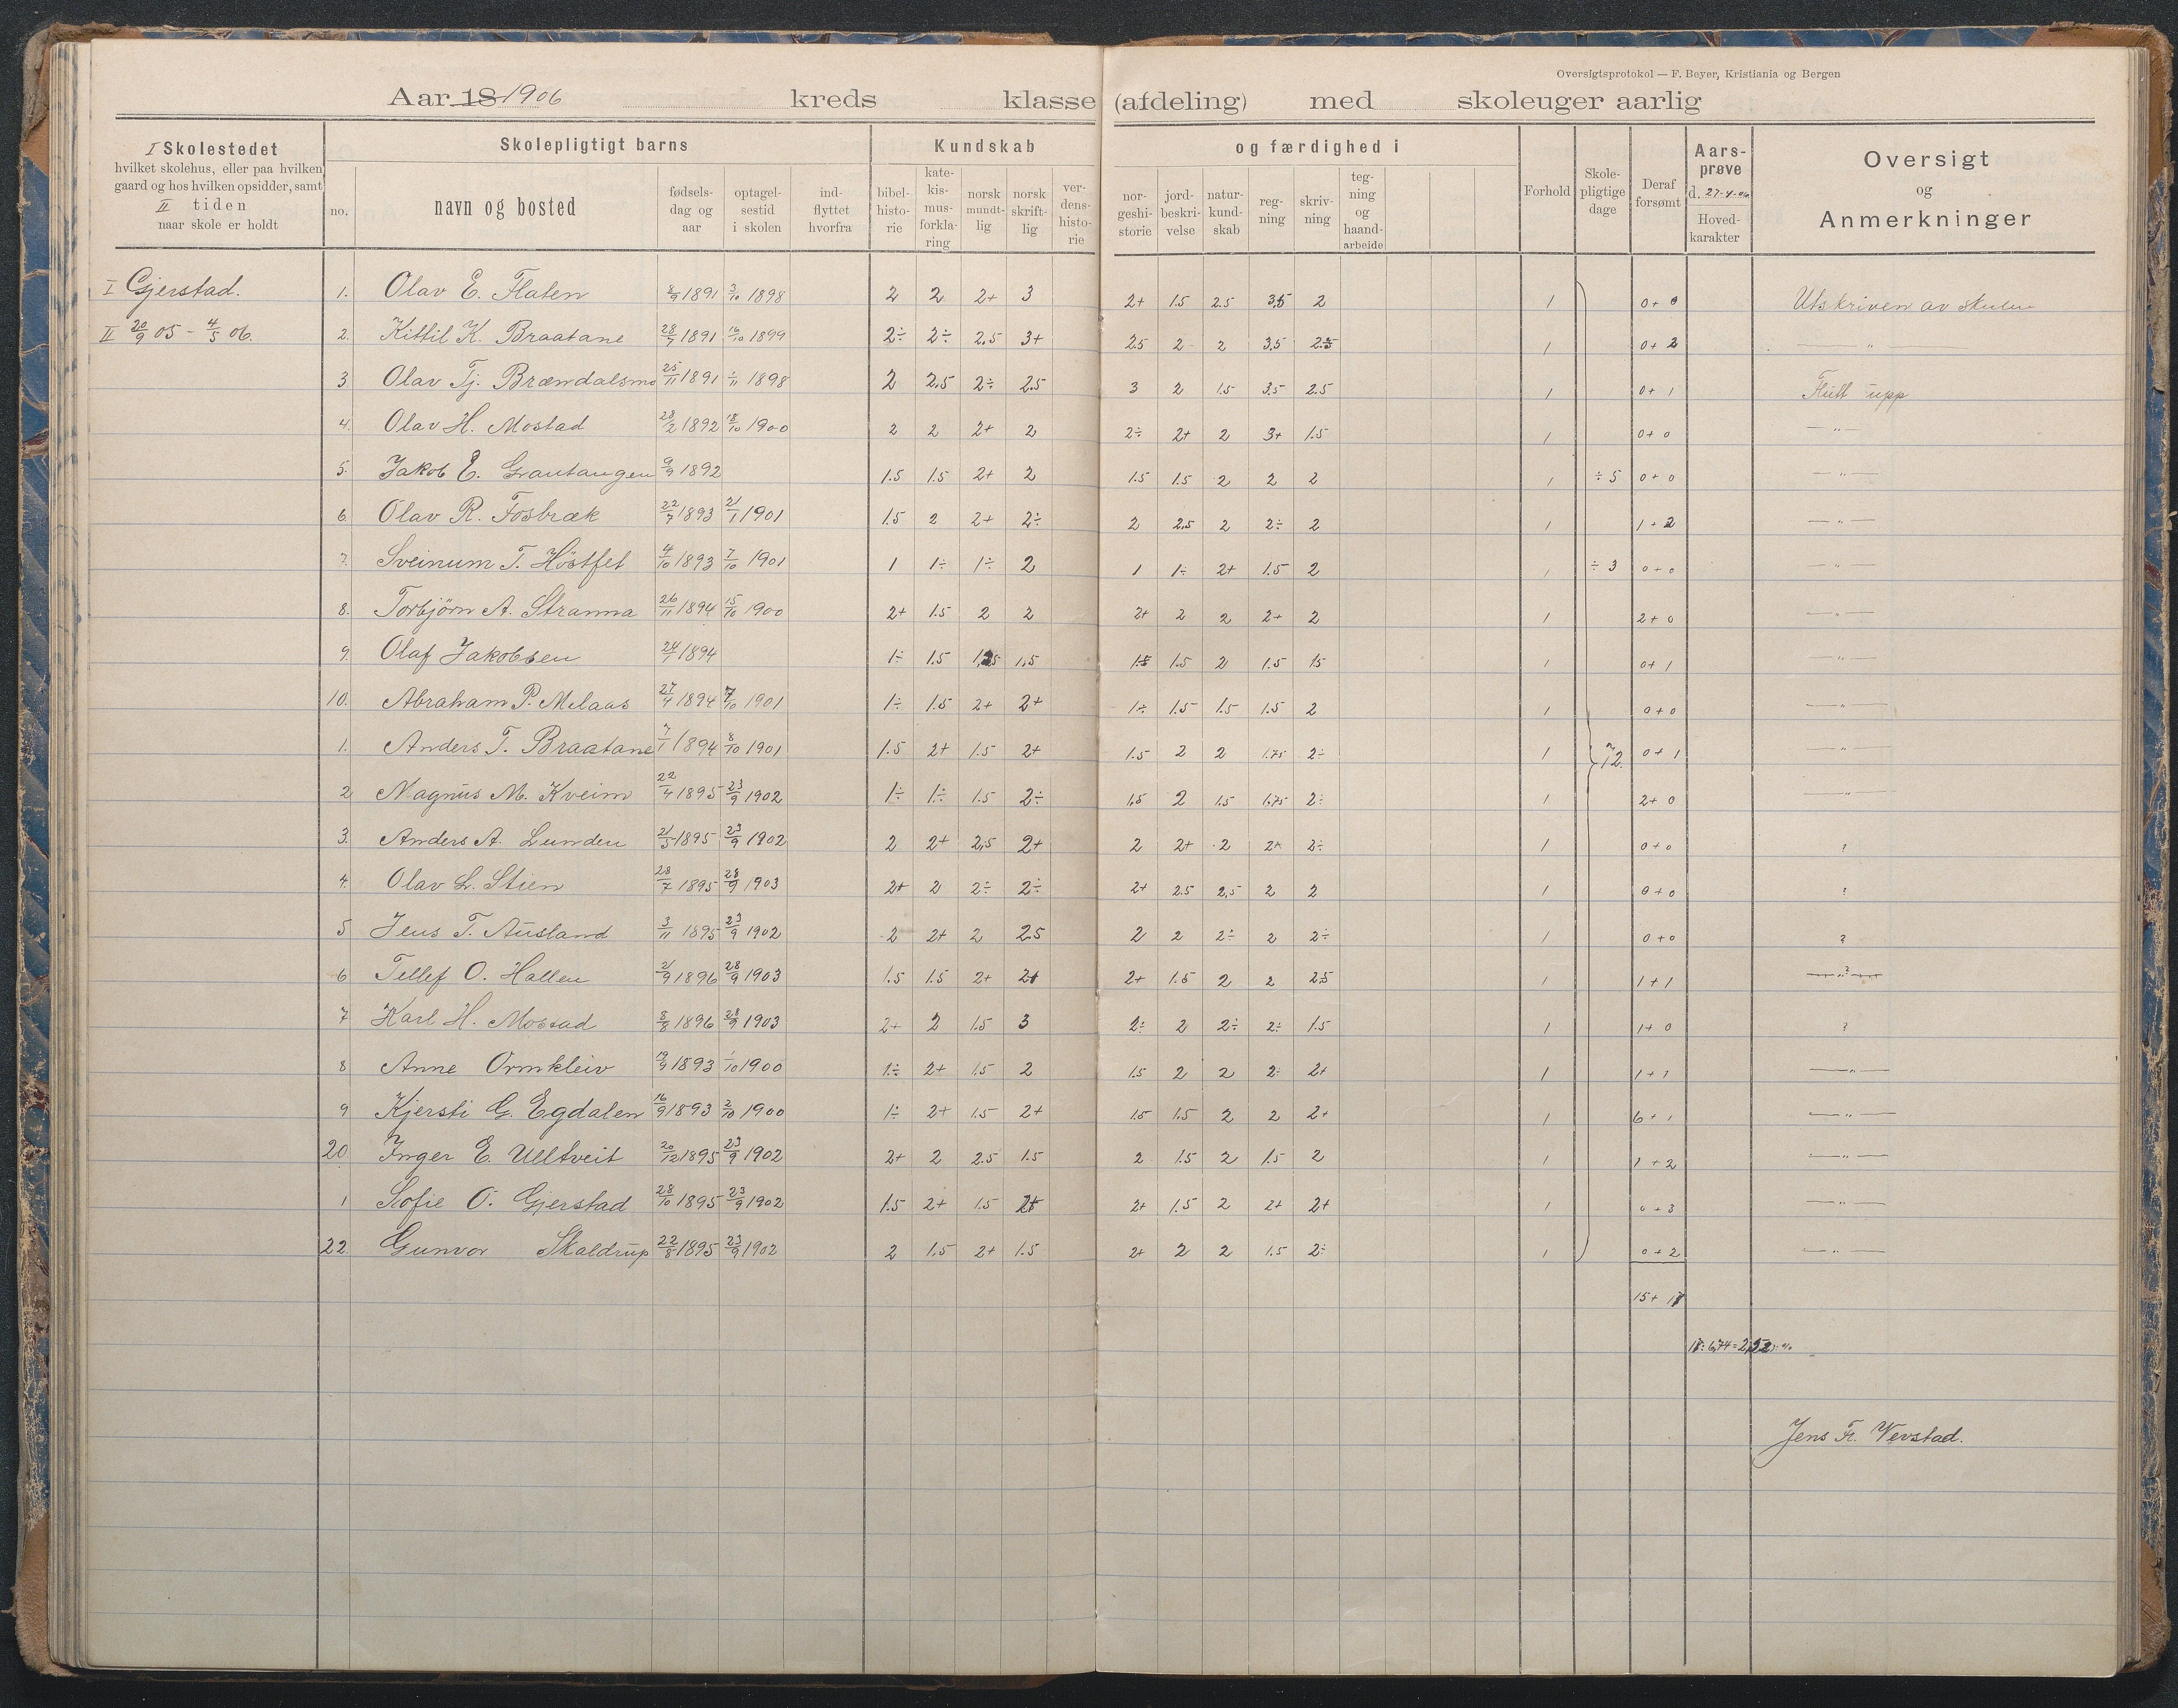 Oversigtsprotokol — F. Beyer, Kristiania og Bergen
Aar 18 1906 kreds klasse (afdeling) med skoleuger aarlig
I Skolestedet
hvilket skolehus, eller paa hvilken
gaard og hos hvilken opsidder, samt
II tiden
naar skole er holdt
Skolepligtigt barns
no.
navn og bosted
fødsels-
dag og
aar
optagel-
sestid
i skolen
ind-
flyttet
hvorfra
Kundskab
bibel-
histo-
rie
kate-
kis-
mus-
forkla-
ring
norsk
mundt-
lig
norsk
skrift-
lig
ver-
dens-
histo-
rie
og færdighed i
nor-
geshi-
storie
jord-
beskri-
velse
natur-
kund-
skab
reg-
ning
skriv-
ning
teg-
ning
og
haand-
arbeide
Forhold
Skole-
pligtige
dage
Deraf
forsømt
Aars-
prøve
d. 27-4-06
Hoved-
karakter
Oversigt
og
Anmerkninger
I Gjerstad. 1. Olav E. Flaten 8/9 1891 3/10 1898 2 2 2+ 3 2+ 1.5 2.5 3.5 2 1 0+0 Utskriven av skulen
II 20/9 05 - 4/5 06. 2. Kittil K. Braatane 28/7 1891 16/10 1899 2÷ 2÷ 2.5 3+ 2.5 2 2 3.5 2.5 1 0+2 — " —
3 Olav Tj. Brændalsmo 25/11 1891 1/11 1898 2 2.5 2÷ 2.5 3 2 1.5 3.5 2.5 1 0+1 Flutt upp
4. Olav H. Mostad 28/2 1892 18/10 1900 2 2 2+ 2 2÷ 2+ 2 3+ 1.5 1 0+0 — " —
5. Jakob E. Grautangen 9/9 1892 1.5 1.5 2+ 2 1.5 1.5 2 2 2 1 ÷5 0+0 — " —
6. Olav R. Fosbræk 22/7 1893 21/1 1901 1.5 2 2+ 2÷ 2 2.5 2 2÷ 2 1 1+2 — " —
7. Sveinum T. Høstfet 4/10 1893 7/10 1901 1 1÷ 1÷ 2 1 1÷ 2+ 1.5 2 1 ÷3 0+0 — " —
8. Torbjörn A. Stranna 26/11 1894 15/10 1900 2+ 1.5 2 2 2+ 2 2 2+ 2 1 2+0 — " —
9. Olaf Jakobsen 24/1 1894 1÷ 1.5 1.5 1.5 1.5 2 1.5 15 1 0+1 — " —
10. Abraham P. Melaas 27/4 1894 7/10 1901 1÷ 1.5 2+ 2+ 1÷ 1.5 1.5 1.5 2 1 0+0 — " —
1. Anders T. Braatane 7/1 1894 8/10 1901 1.5 2+ 1.5 2+ 1.5 2 2 1.75 2÷ 1 72. 0+1 — " —
2 Magnus M. Kveim 22/4 1895 23/9 1902 1÷ 1÷ 1.5 2÷ 1.5 2 1.5 1.75 2÷ 1 2+0 — " —
3. Anders A. Lunden 21/5 1895 23/9 1902 2 2+ 2.5 2+ 2 2+ 2 2+ 2÷ 1 0+0 ?
4. Olav L. Stien 28/7 1895 28/9 1903 2+ 2 2÷ 2÷ 2+ 2.5 2.5 2 2 1 0+0 ?
5 Jens T. Ausland 3/11 1895 23/9 1902 2 2+ 2 2.5 2 2 2÷ 2 2÷ 1 0+0 ?
6 Tellef O. Hallen 21/9 1896 28/9 1903 1.5 1.5 2+ 2+ 2+ 1.5 2 2 2.5 1 1+1 — ? —
7 Karl H. Mostad 8/8 1896 28/9 1903 2+ 2 1.5 3 2÷ 2 2÷ 2÷ 1.5 1 1+0 ?
8 Anne Ormkleiv 19/9 1893 1/10 1900 1÷ 2+ 1.5 2 1.5 2 2 2÷ 2+ 1 1+1 — " —
9 Kjersti G. Egdalen 16/9 1893 2/10 1900 1÷ 2+ 1.5 2+ 1.5 1.5 2 2 2+ 1 6+1 — " —
20. Inger E. Ulltveit 20/12 1895 23/9 1902 2+ 2 2.5 1.5 2 1.5 2 1.5 2 1 1+2 — " —
1 Sofie O. Gjerstad 28/10 1895 23/9 1902 1.5 2+ 1.5 2+ 2+ 1.5 2 2+ 2+ 1 0+3 — " —
22. Gunvor Skaldrup 22/8 1895 23/9 1902 2 1.5 2+ 1.5 2+ 2 2 1.5 2÷ 1 0+2 — " —
15+17
Jens Fr. Vevstad.